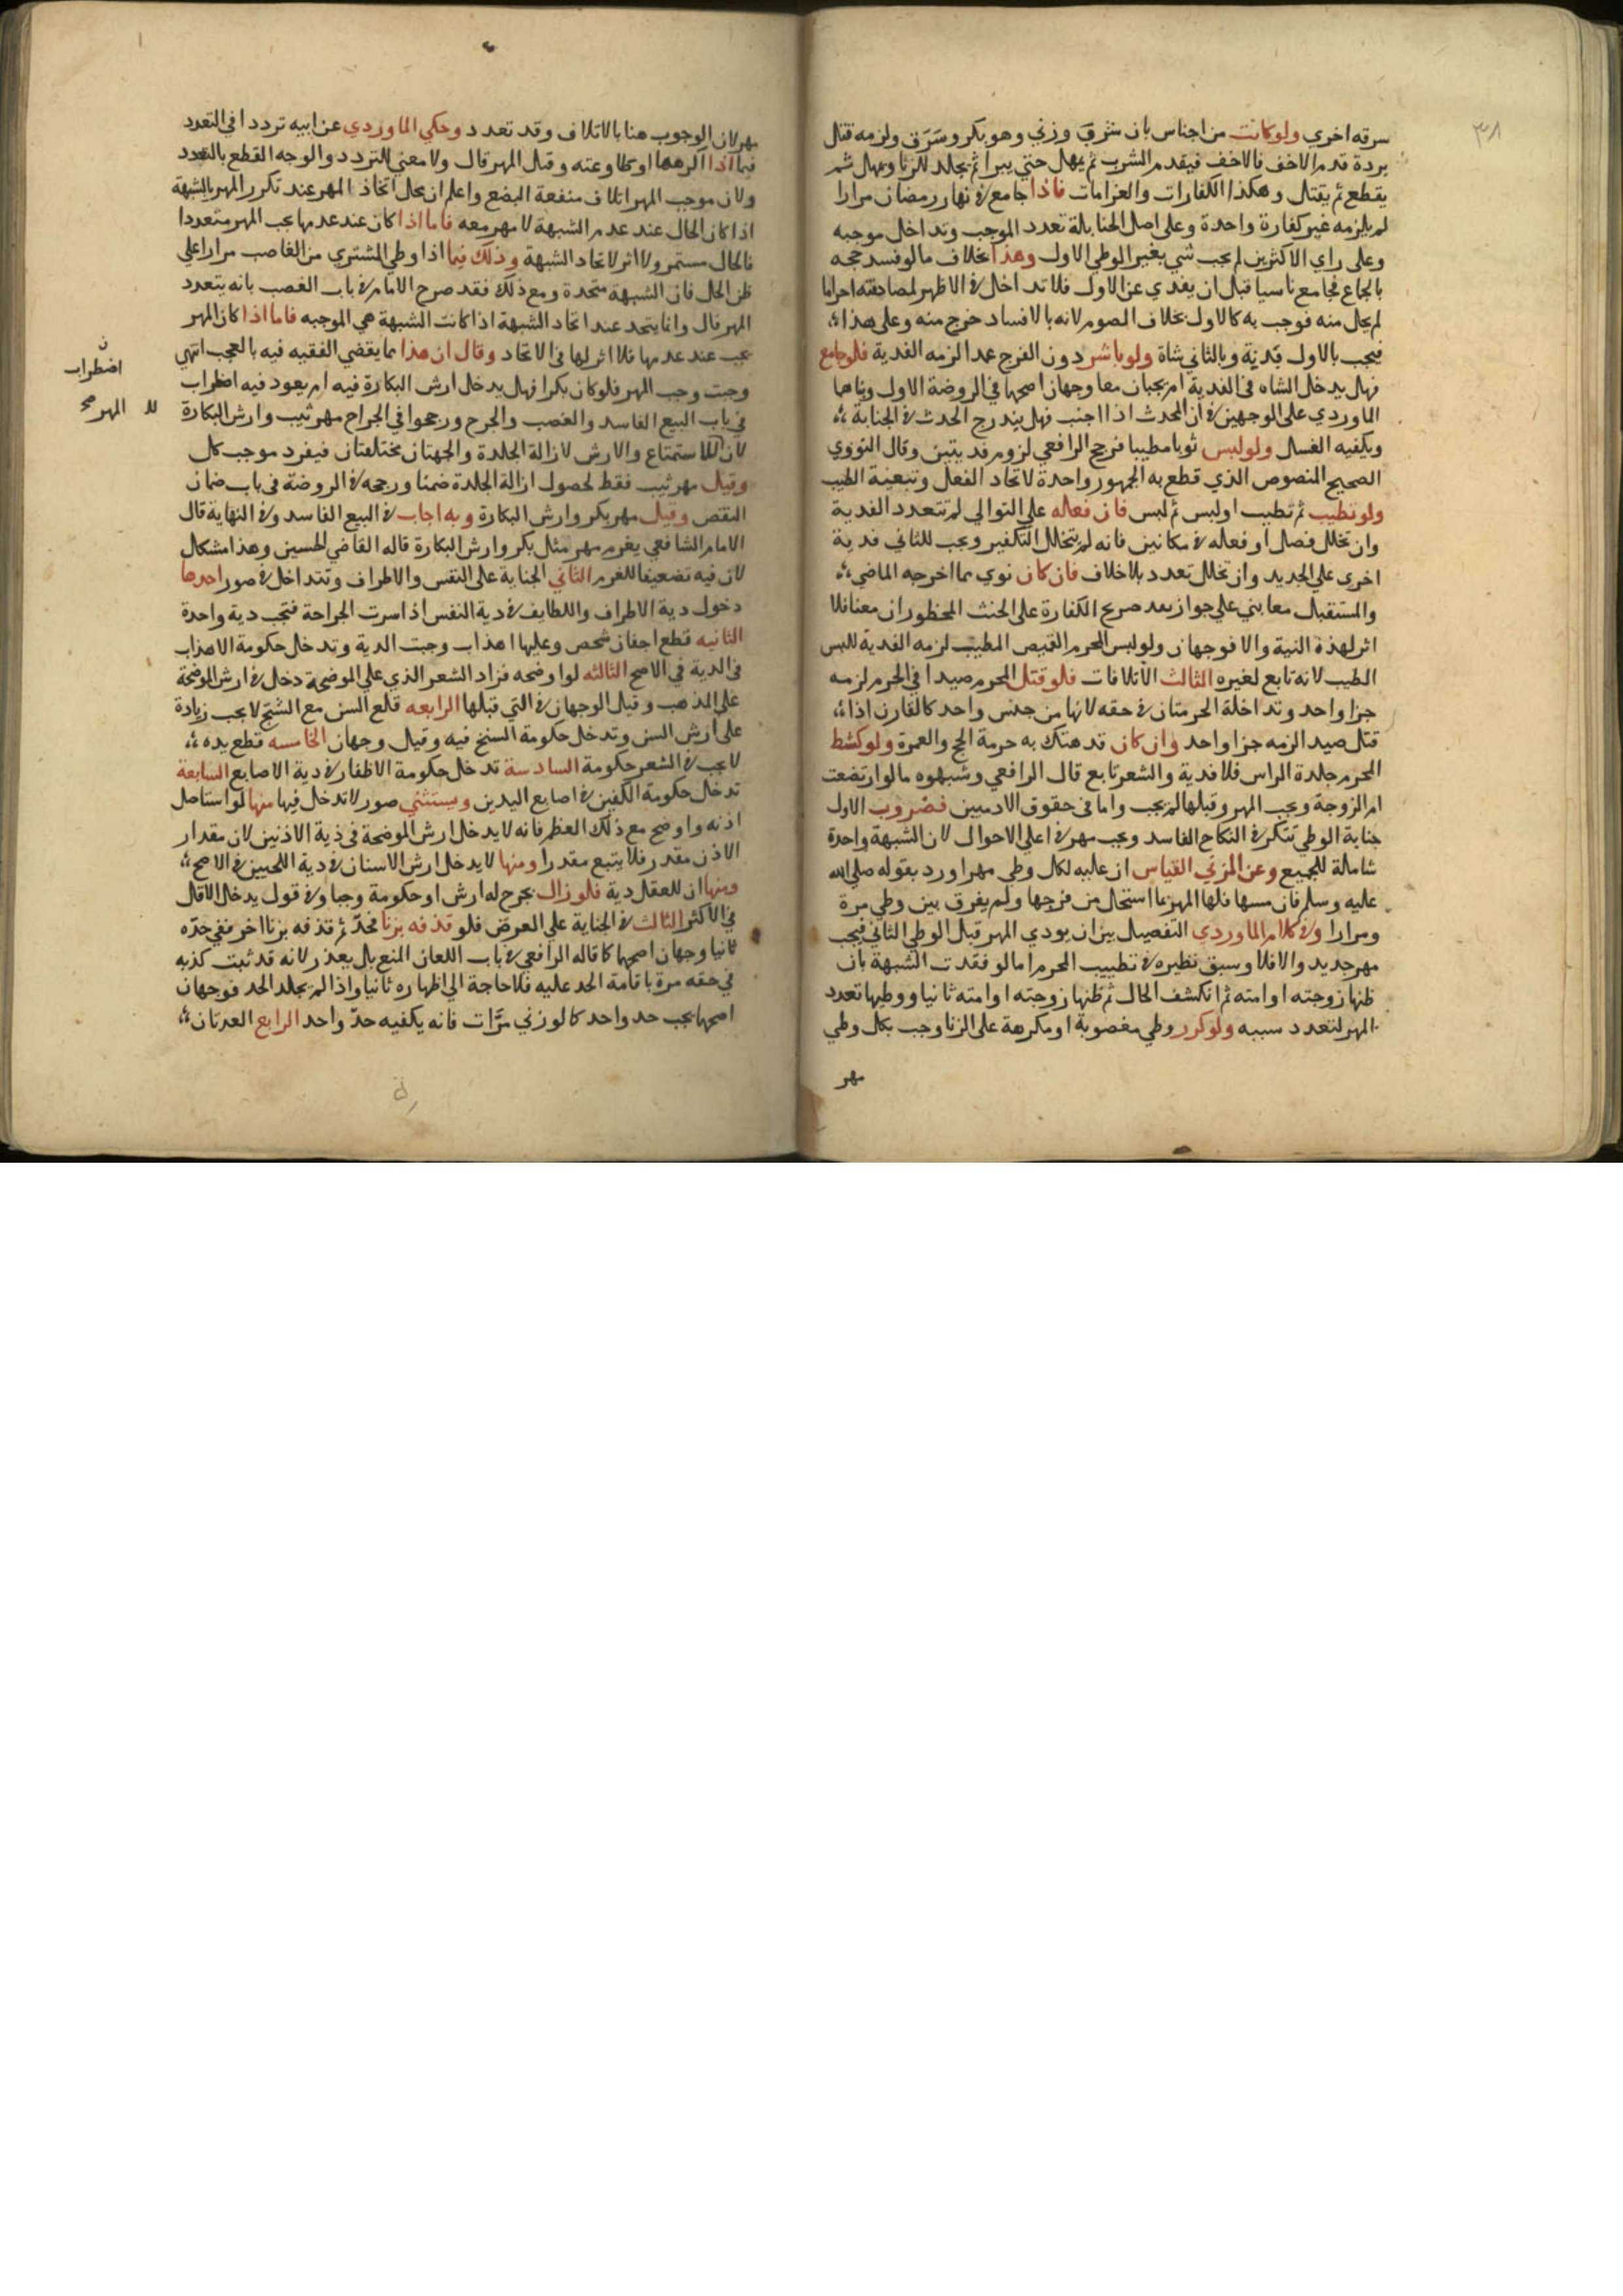 ٣٨
سرقه اخري ولوكانت من اجناس بان شرب وزني وهو بكر وسرق ولزمه قتل
بردة قدم الاخف فالاخف فيقدم الشرب ثم يمهل حتي يبرا ثم يجلد للزنا ويمهل ثم
يقطع ثم يقتل وهكذا الكفارات والغرامات فاذا جامع في نهار رمضان مرارا
لم يلزمه غير كفارة واحدة وعلي اصل الحنابلة تعدد الموجب وتداخل موجبه
وعلى راي الاكثرين لم يجب شي بغير الوطي الاول وهذا بخلاف مالو فسد حجه
بالجماع فجامع ناسيا قبل ان يفدي عن الاول فلا تداخل في الاظهر لمصادفته احراما
لم يحل منه فوجب به كالاول بخلاف الصوم لانه بالافساد خرج منه وعلى هذا
فيجب بالاول بدنة وبالثاني شاة ولو باشر دون الفرج عمدا لزمه الفدية فلو جامع
فهل يدخل الشاه في الفدية ام يجبان معا وجهان اصحهما في الروضة الاول وبناهما
الماوردي على الوجهين في ان المحدث اذا اجنب فهل يندرج الحدث في الجنابة
ويكفيه الغسل ولو لبس ثوبا مطيبا فرجح الرافعي لزوم فديتين وقال النووي
الصحيح المنصوص الذي قطع به الجمهور واحدة لاتحاد الفعل وتبعية الطيب
ولو تطيب ثم تطيب او لبس ثم لبس فان فعله على التوالي لم تتعدد الفدية
وان تخلل فصل او فعله في مكانين فانه لم يتخلل التكفير ويجب للثاني فدية
اخري علي الجديد وان تخلل تعدد بلا خلاف فان كان نوي بما اخرجه الماضي
والمستقبل معا بني علي جواز تقديم الكفارة على الحنث المحظور ان معنا فلا
اثر لهذه النية والا فوجهان ولو لبس المحرم القميص المطيب لزمه الفدية للبس
الطيب لانه تابع لغيره الثالث الاتلافات فلو قتل المحرم صيدا في الحرم لزمه
جزا واحد وتداخلة الحرمتان في حقه لانها من جنس واحد كالقارن اذا
قتل صيد الزمه جزا واحد وان كان قد هتك به حرمة الحج والعمرة ولو كشط
المحرم جلدة الراس فلا فدية والشعر تابع قال الرافعي وشبهوه مالو ارتضعت
ام الزوجة ويجب المهر وقبلها لم يجب واما في حقوق الادميين فضروب الاول
جناية الوطي تتكرر في النكاح الفاسد ويجب مهر في اعلي الاحوال لان الشبهة واحدة
شاملة للجميع وعن المزني القياس ان عليه لكل وطي مهرا ورد بقوله صلى الله
عليه وسلم فان مسها فلها المهر بما استحل من فرجها ولم يفرق بين وطي مرة
ومرارا وفي كلام الماوردي التفصيل بين ان يودي المهر قبل الوطي الثاني فيجب
مهر جديد والا فلا وسبق نظيره في تطييب المحرم اما لو فقدت الشبهة بان
ظنها زوجته او امته ثم انكشف الحال ثم ظنها زوجته او امته ثانيا ووطيها تعدد
المهر لتعدد سببه ولو كرر وطي مغصوبة او مكرهة على الزنا وجب بكل وطي
مهر
مهر لان الوجوب هنا بالاتلاف وقد تعدد وحكي الماوردي عن ابيه ترددا في التعدد
فيما اذا اكرهها او طاوعته وقبل المهر قال ولا معني للتردد والوجه القطع بالتعدد
ولان موجب المهر اتلاف منفعة البضع واعلم ان محل اتحاد المهر عند تكرر المهر بالشبهة
اذا كان الحال عند عدم الشبهة لا مهر معه فاما اذا كان عند عدمها يجب المهر متعددا
فالحال مستمر ولا اثر لاتحاد الشبهة وذلك فيما اذا وطي المشتري من الغاصب مرارا علي
ظن الحل فان الشبهة متحدة ومع ذلك فقد صرح الامام في باب الغصب بانه يتعدد
المهر قال وانما يتحد عند اتحاد الشبهة اذا كانت الشبهة هي الموجبه فاما اذا كان المهر
يجب عند عدمها فلا اثر لها في الاتحاد وقال ان هذا مما يقضي الفقيه فيه بالعجب انتهي
وحيث وجب المهر فلو كان بكرا فهل يدخل ارش البكارة فيه ام يعود فيه اضطراب
في باب البيع الفاسد والغصب والجرح ورجحوا في الجراح مهر ثيب وارش البكارة
لان للاستمتاع والارش لازالة الجلدة والجهتان مختلفتان فيفرد موجب كل
وقيل مهر ثيب فقط لحصول ازالة الجلدة ضمنا ورجحه في الروضة في باب ضمان
النقص وقيل مهر بكر وارش البكارة وبه اجاب في البيع الفاسد وفي النهاية قال
الامام الشافعي يغرم مهر مثل بكر وارش البكارة قاله القاضي الحسين وهذا مشكل
لان فيه تضعيفا للغرم الثاني الجناية على النفس والاطراف وتتداخل في صور احدها
دخول دية الاطراف واللطايف في دية النفس اذا سرت الجراحة فتجب دية واحدة
الثانيه قطع اجفان شخص وعليها اهداب وجبت الدية وتدخل حكومة الاهداب
في الدية في الاصح الثالثه لو اوضحه فزاد الشعر الذي علي الموضحة دخل في ارش الموضحة
على المذهب وقيل الوجهان في التي قبلها الرابعه قلع السن مع السنخ لا يجب زيادة
على ارش السن وتدخل حكومة السنخ فيه وقيل وجهان الخامسه قطع يده
لا يجب في الشعر حكومة السادسة تدخل حكومة الاظفار في دية الاصابع السابعة
تدخل حكومة الكفين في اصابع اليدين ويستثني صور لا تدخل فيها منها لو استاصل
اذنه واوضح مع ذلك العظم فانه لا يدخل ارش الموضحة في دية الاذنين لان مقدار
الاذن مقدر فلا يتبع مقدرا ومنها لا يدخل ارش الاسنان في دية اللحيين في الاصح
ومنها ان للعقل دية فلو زال بجرح له ارش او حكومة وجبا وفي قول يدخل الاقل
في الاكثر الثالث في الجناية علي العرض فلو قذفه بزنا فحد ثم قذفه بزنا اخر ففي حده
ثانيا وجهان اصحهما كما قاله الرافعي في باب اللعان المنع بل يعذر لانه قد ثبت كذبه
في حقه مرة باقامة الحد عليه فلا حاجة الي اظهاره ثانيا واذا لم يجلد الحد فوجهان
اصحهما يجب حد واحد كما لو زني مرات فانه يكفيه حد واحد الرابع العدتان
ن
اضطراب
المهر صح